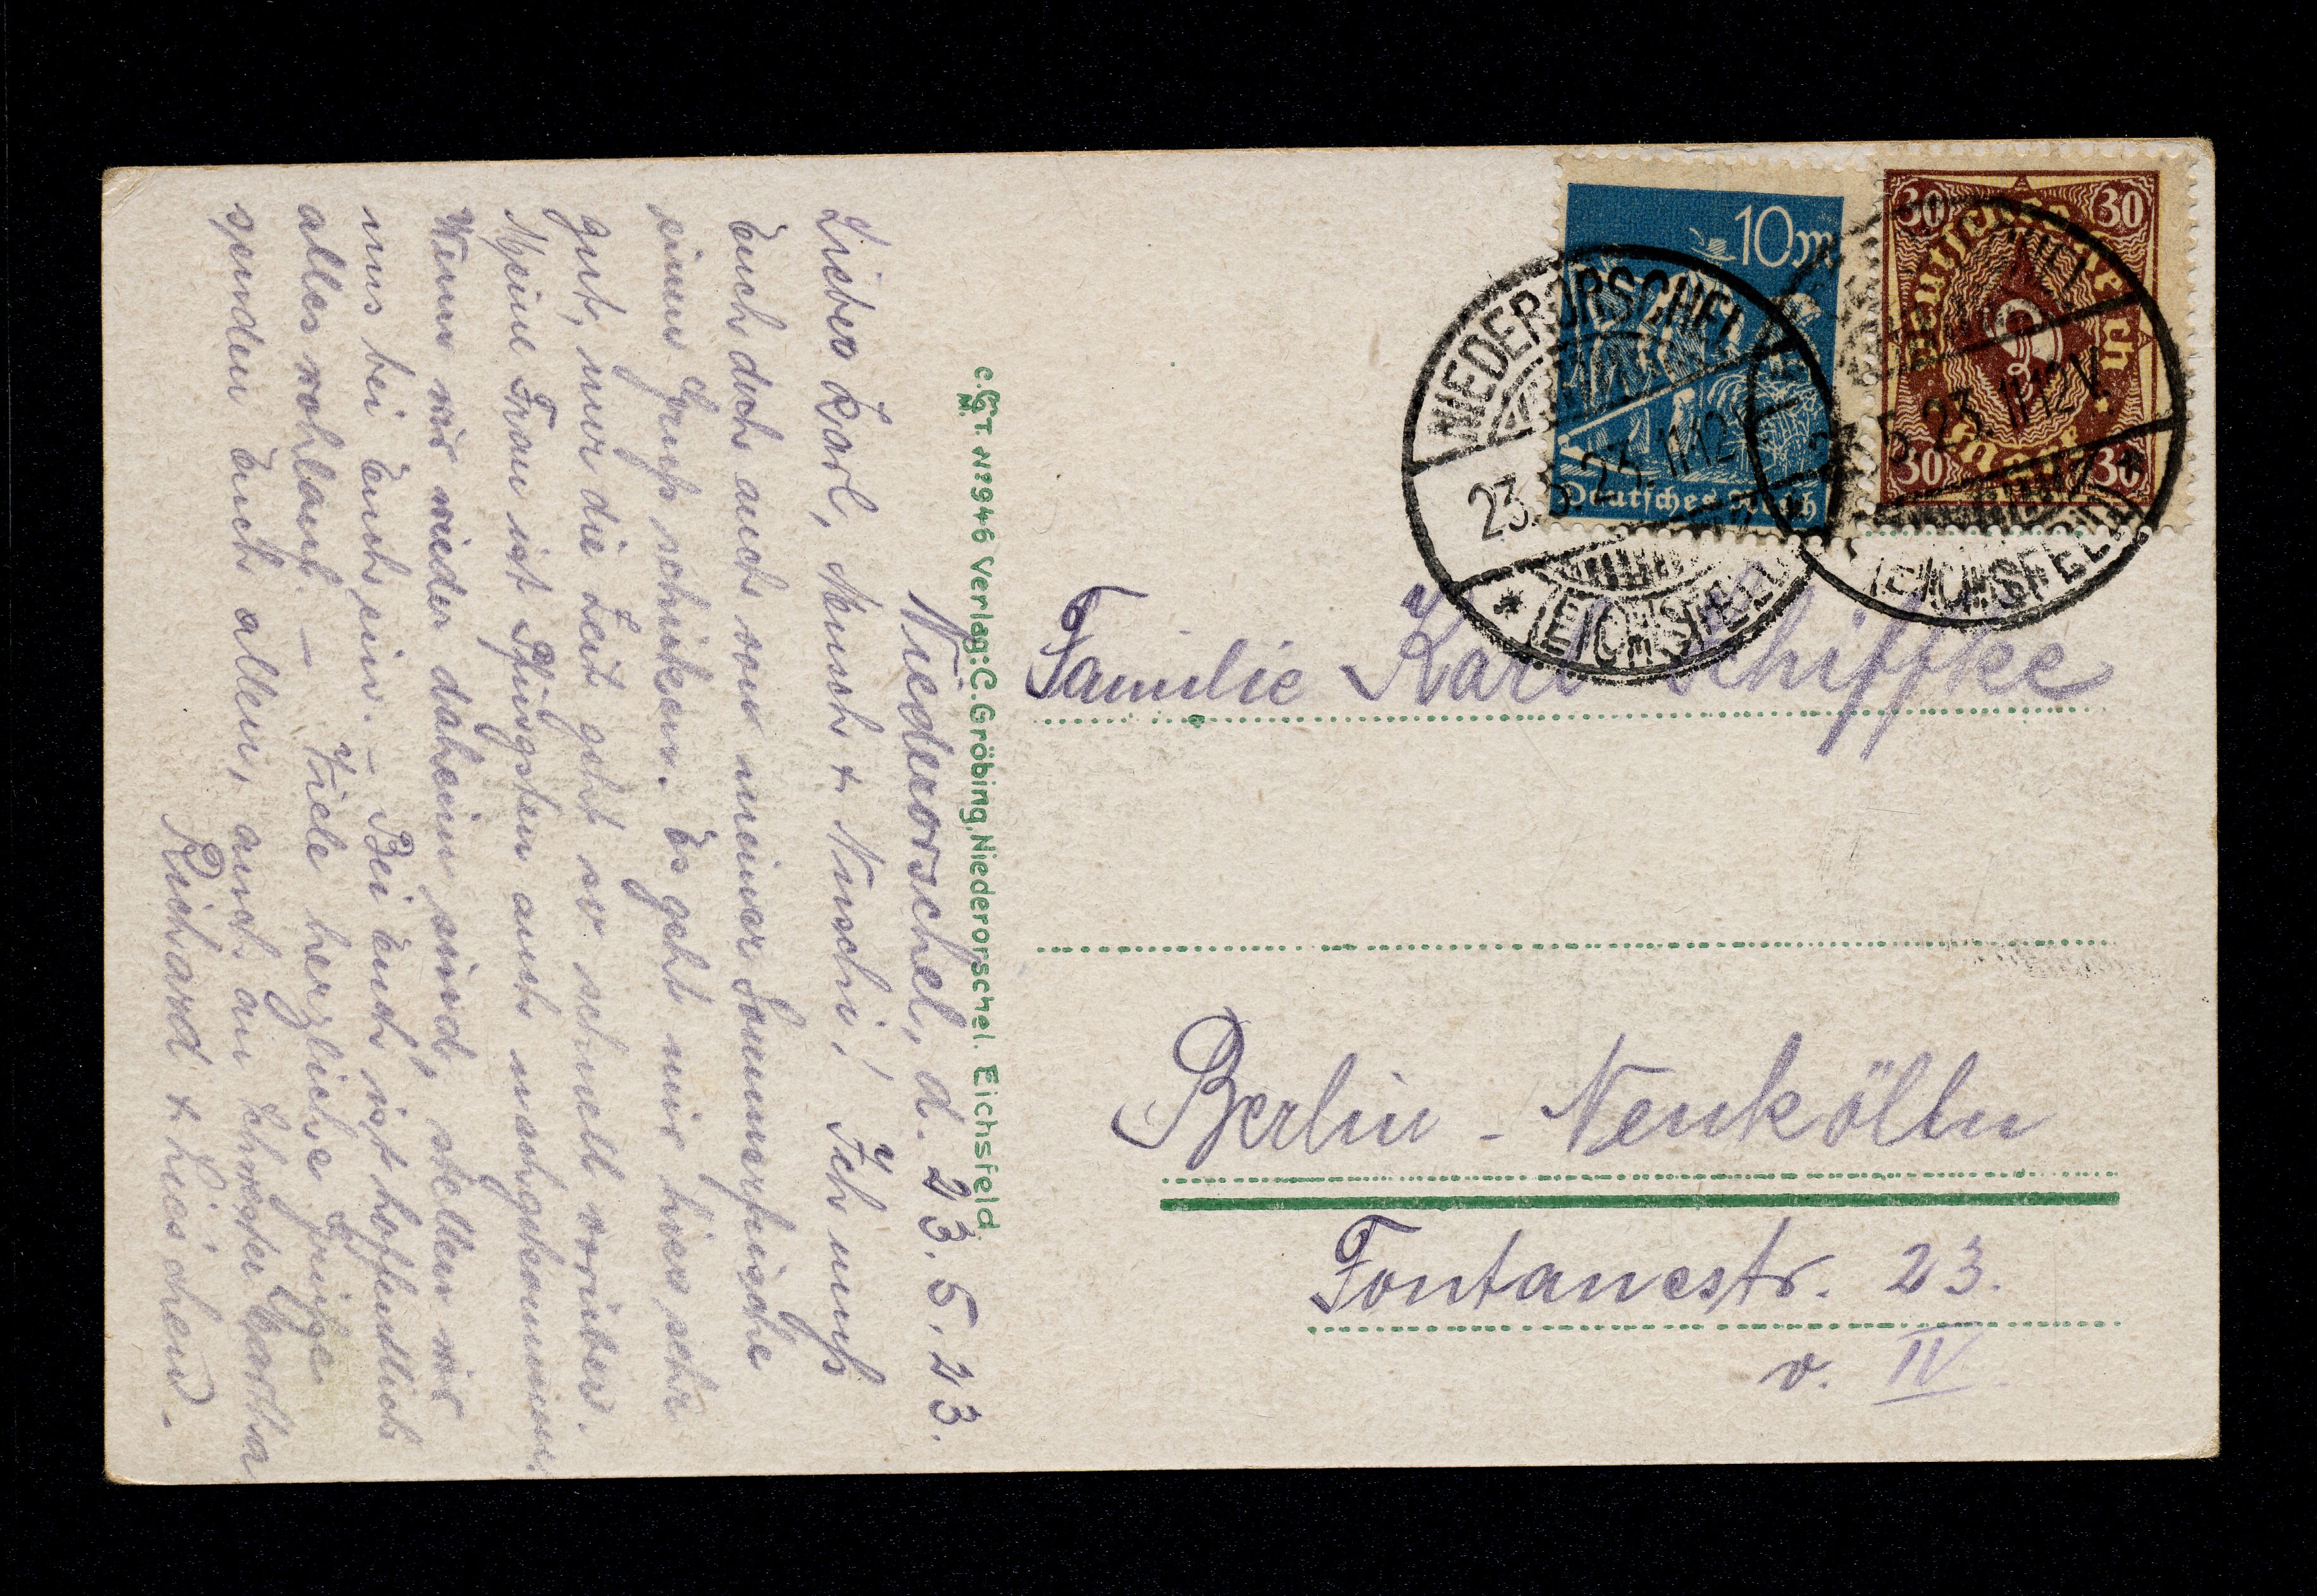 Niederorschel, d. 23.5.23.
Lieber Karl, Mensch + Nuschi! Ich muß
Euch doch auch von meiner Sommerfrische
einen Gruß schicken. Es geht mir hier sehr
gut, nur die Zeit geht so schnell vorüber.
Meine Frau ist Pfingsten auch nachgekommen.
Wenn wir wieder daheim sind, stellen wir
uns bei Euch ein. – Bei Euch ist hoffentlich
alles wohlauf. – Viele herzliche Grüße
senden Euch allen, auch an Schwester Martha
Richard + Lies'chen.
C.G.M.T. No 946 Verlag: C. Gröbing, Niederorschel. Eichsfeld.
10 M
Deutsches Reich
30 30
Deutsches Reich
30 Mark 30
NIEDERORSCHEL
23.5.23. 11-12 V.
* (EICHSFELD)
23.5.23. 11-12 V.
* (EICHSFELD)
Familie Karl Schiffke
Berlin - Neukölln
Fontanestr. 23.
v. IV.